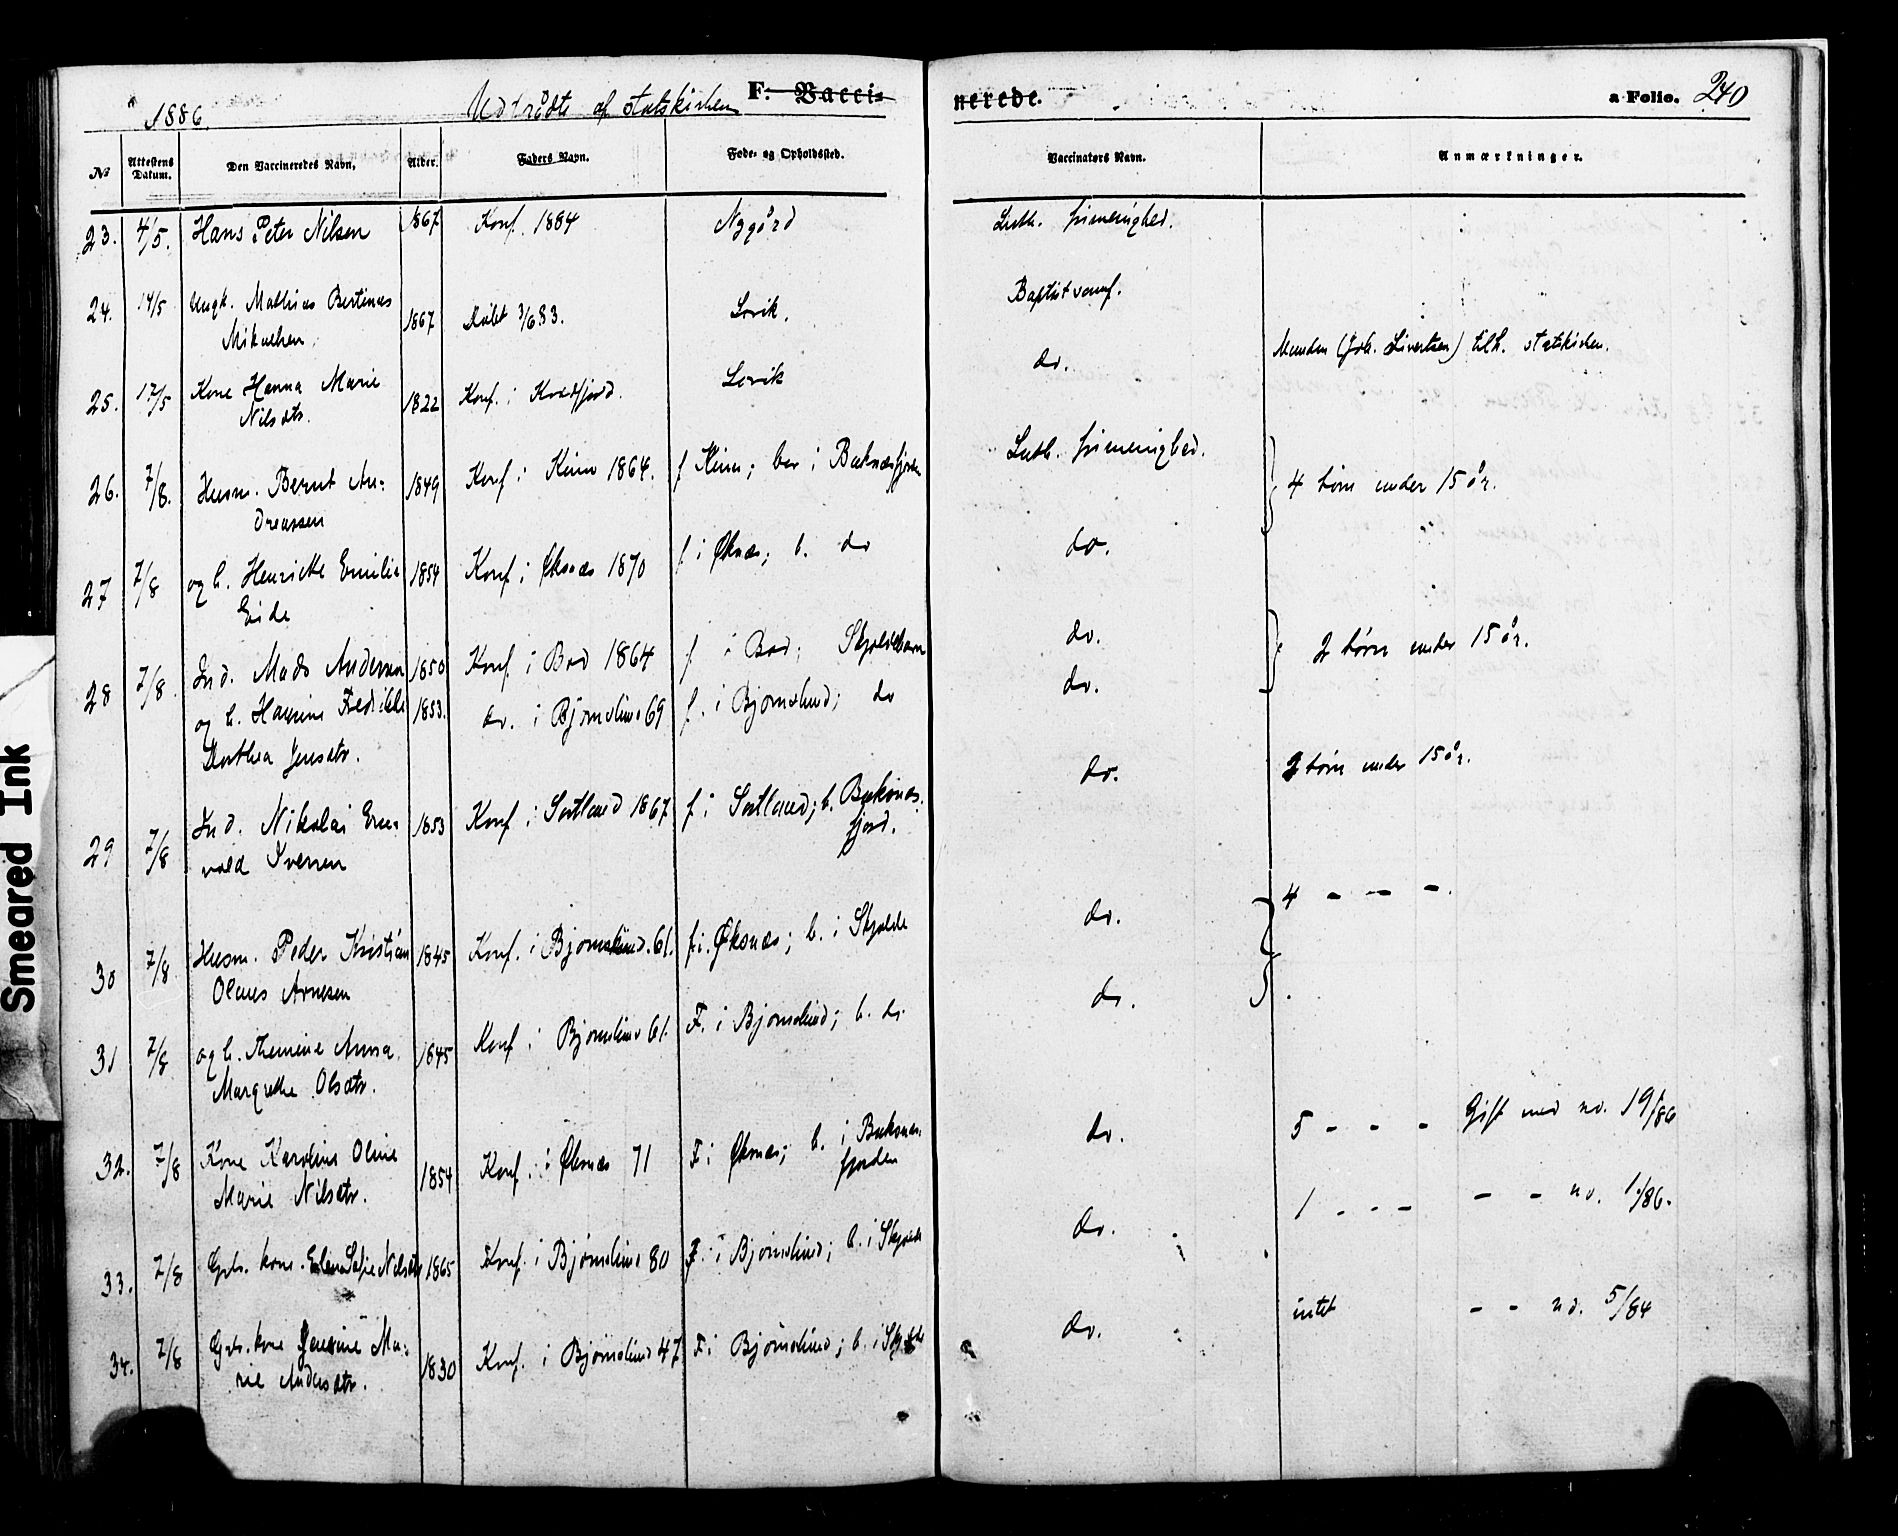 1886. Udtrådte af statskirken F. Vacci-
nerede. a Folio. 240
No Attestens Datum. Den Vaccineredes Navn, Alder. Faders Navn. Føde- og Opholdssted. Vaccinators Navn. Anmærkninger.
23. 4/5. Hans Peter Nilsen 1867 Konf. 1884 Nygård Luth. frimenighed.
24. 14/5 Ungk. Mathias Bertinus 1867 Døbt 3/6 83. Lovik. Baptistsamf.
Mikaelsen.
25. 17/5 Kone Hanna Marie 1822 Konf. i Kvedfjord. Lovik do. Manden (Joh. Sivertsen) tilh. statskirken.
Nilsdtr.
26. 7/8. Husm. Bernt An- 1849 Konf. i Kinn 1864. f Kinn; bor i Buknæsfjorden Luth. frimenighed. 4 børn under 15 år.
dreassen
27 7/8 og h. Henrikke Emilie 1854 Konf. i Øksnæs 1870 f. i Øksnæs; b. do do.
Eide
28 7/8. Ind. Mads Andersen 1850 Konf. i Bod 1864 f. i Bod; do. 2 børn under 15 år.
og h. 1853. do. i Bjørnskind 69 f. i Bjørnskind; do do.
Dorthea Jensdtr.
29 7/8 Ind. Nikolai 1853 Konf. i Sortland 1867 f. i Sortland; b. Buknæs- do. 2 børn under 15 år.
vald Iversen fjord.
30 7/8. Husm. Peder Kristian 1845 Konf. i Bjørnskind. 61. f. i. Øksnæs; b. i Skjolde do. 4 - - -.
Olaus Arnesen
31 7/8 og h. Anna 1845 Konf. i Bjørnskind 61. F. i Bjørnskind; b. do. do.
Margrethe Olsdtr.
32. 7/8 Kone Karoline Oline 1854 Konf. i Øksnæs 71 F. i Øksnæs; b. i Buknæs- do. 5 - - - Gift med no. 19/86
Marie Nilsdtr. fjorden
33. 7/8 Gbr. kone. Nilsdtr 1865 Konf. i Bjørnskind 80 F. i Bjørnskind; b. i Skjolde do. 1 - - - - - no. 1/86.
34. 7/8 Gbr. kone Jensine Ma- 1830 Konf. i Bjørnskind 47 F. i Bjørnskind; b. i do. intet - - no. 5/84
rie Andersdtr.
Smeared Ink